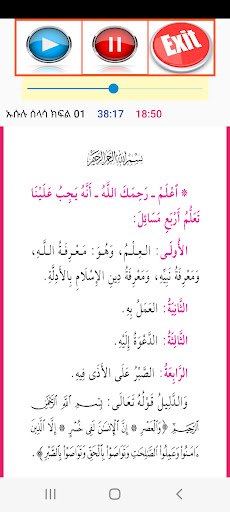 Exit
ኡሱሉ ሰላሳ ክፍል 01 38:17 18:50
بِسْمِ اللَّهِ الرَّحْمَنِ الرَّحِيمِ
* اعْلَمْ ـ رَحِمَكَ اللَّهُ ـ أَنَّهُ يَجِبُ عَلَيْنَا
تَعَلُّمُ أَرْبَعِ مَسَائِلَ:
الأُولَى: العِلْمُ، وَهُوَ: مَعْرِفَةُ اللَّهِ،
وَمَعْرِفَةُ نَبِيِّهِ، وَمَعْرِفَةُ دِينِ الإِسْلَامِ بِالأَدِلَّةِ.
الثَّانِيَةُ: العَمَلُ بِهِ.
الثَّالِثَةُ: الدَّعْوَةُ إِلَيْهِ.
الرَّابِعَةُ: الصَّبْرُ عَلَى الأَذَى فِيهِ.
وَالدَّلِيلُ قَوْلُهُ تَعَالَى: بِسْمِ اللَّهِ الرَّحْمَنِ
الرَّحِيمِ ﴿وَالْعَصْرِ * إِنَّ الْإِنْسَانَ لَفِي خُسْرٍ * إِلَّا الَّذِينَ
ءَامَنُوا وَعَمِلُوا الصَّالِحَاتِ وَتَوَاصَوْا بِالْحَقِّ وَتَوَاصَوْا بِالصَّبْرِ﴾.